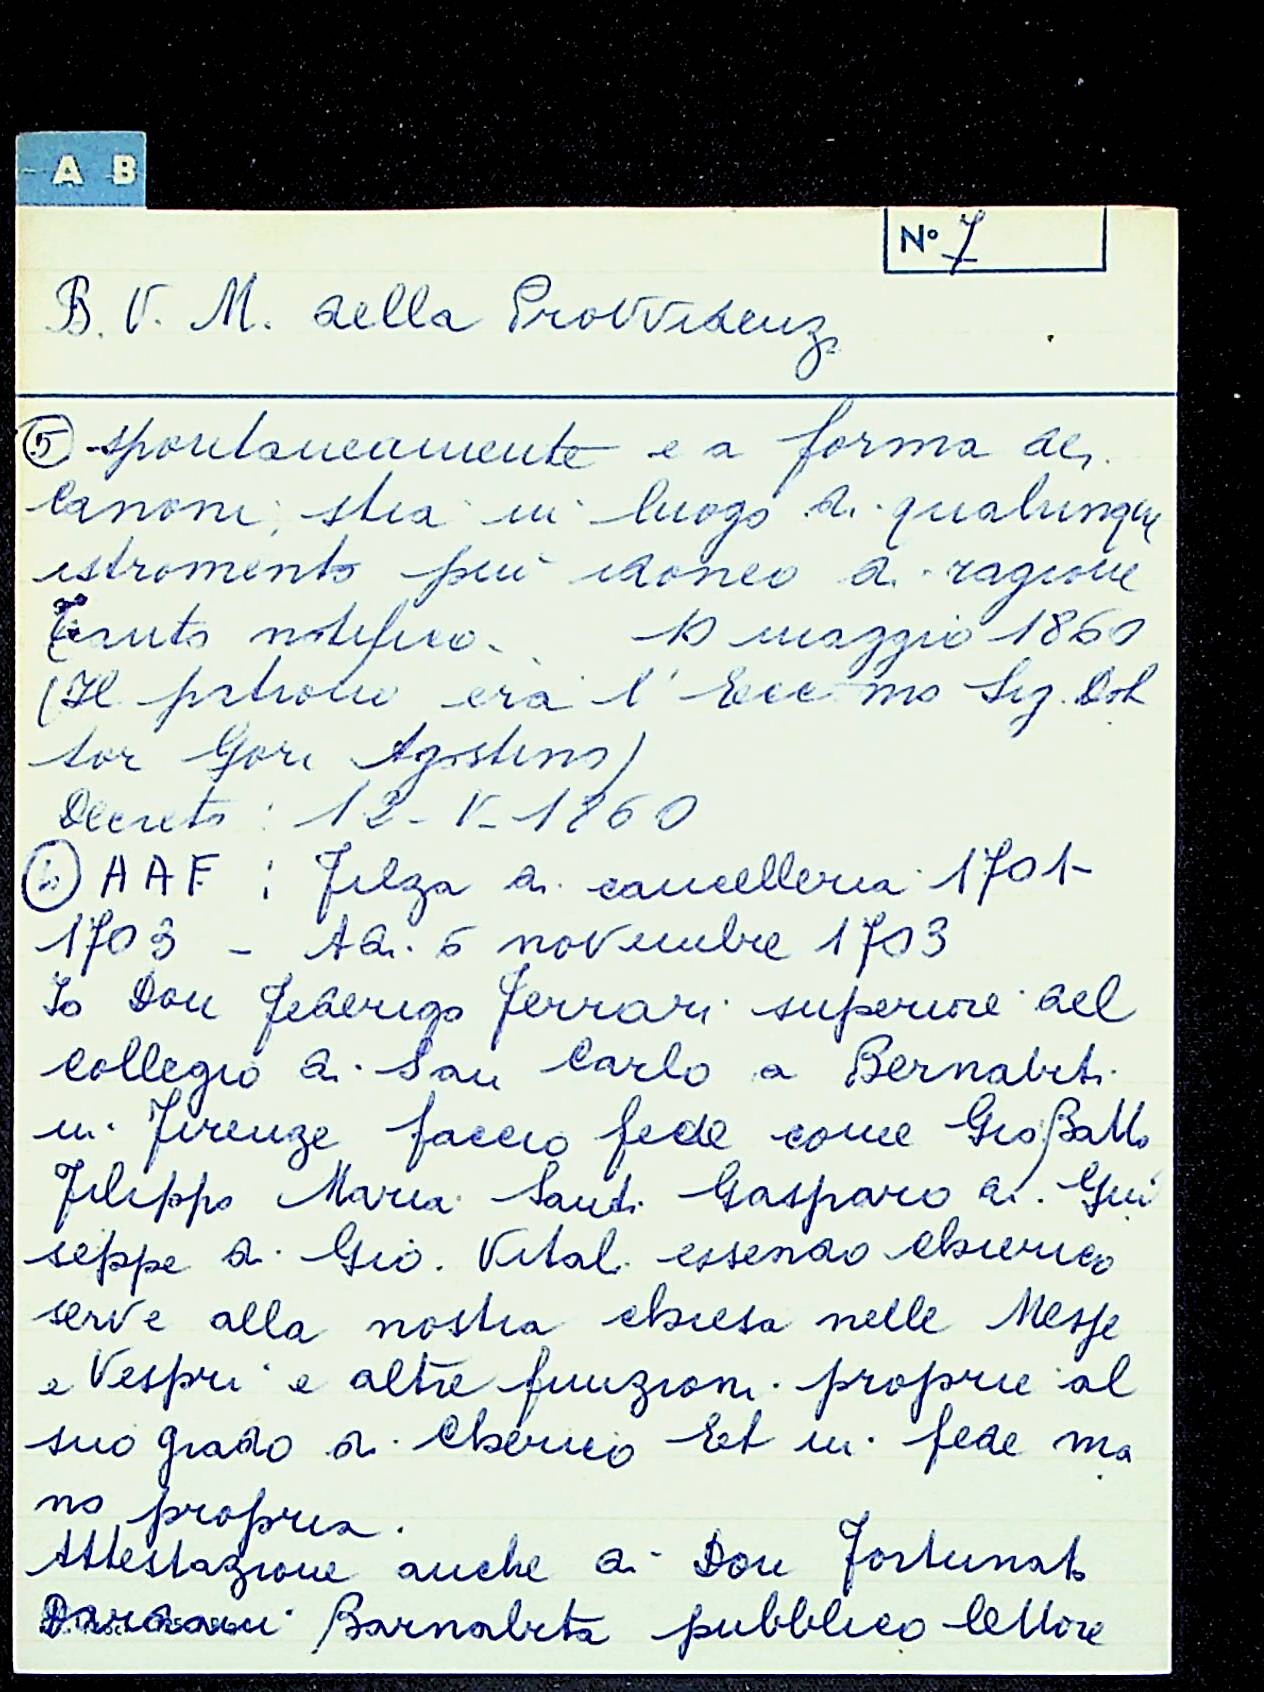 A B
N° 7
B. V. M. della Provvidenz
5 spontaneamente e a forma dei
canoni, stia in luogo di qualunque
istromento più idoneo di ragione
Tanto notifico. 10 maggio 1860
(Il patrono era l'Ecc mo Sig. Dot
tor Gori Agostino)
Decreto: 12-V-1860
AAF: Filza di cancelleria 1701-
1703 - Adi 5 novembre 1703
Io Don Federigo Ferrari superiore del
collegio di San Carlo a Bernabiti
in Firenze faccio fede come Gio Batta
Filippo Maria Santi Gasparo di Giu
seppe di Gio. Vitali essendo chierico
serve alla nostra chiesa nelle Messe
e Vespri e altre funzioni proprie al
suo grado di Cherico Et in fede ma
no propria.
Attestazione anche di Don Fortunato
Barnabita pubblico lettore